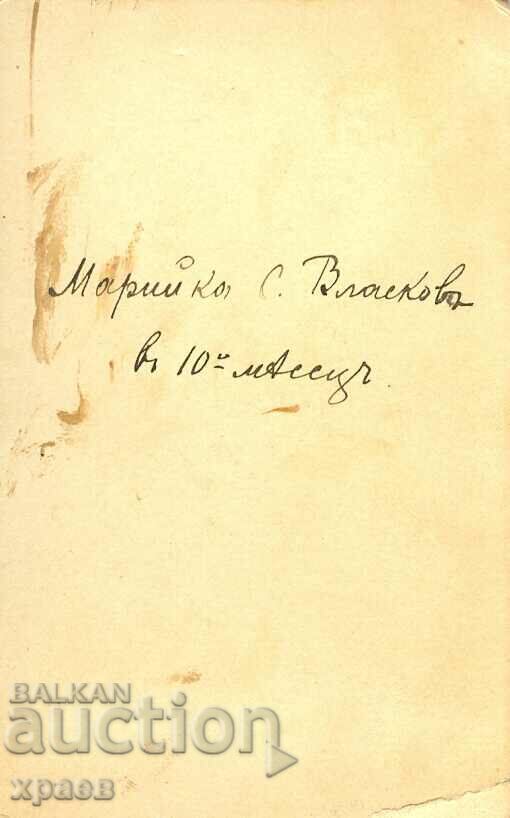 Марийка С. Власкова
въ 10й мѣсецъ.
BALKAN
auction
храев